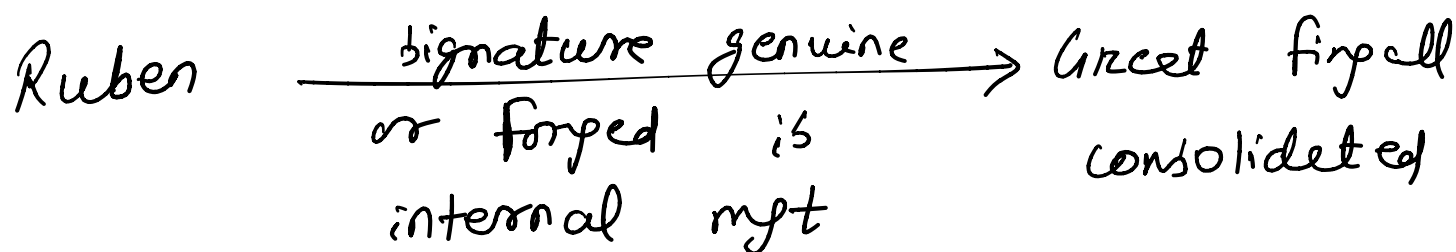 Ruben signature genuine Great fingall
or forged is consolidated
internal mgt